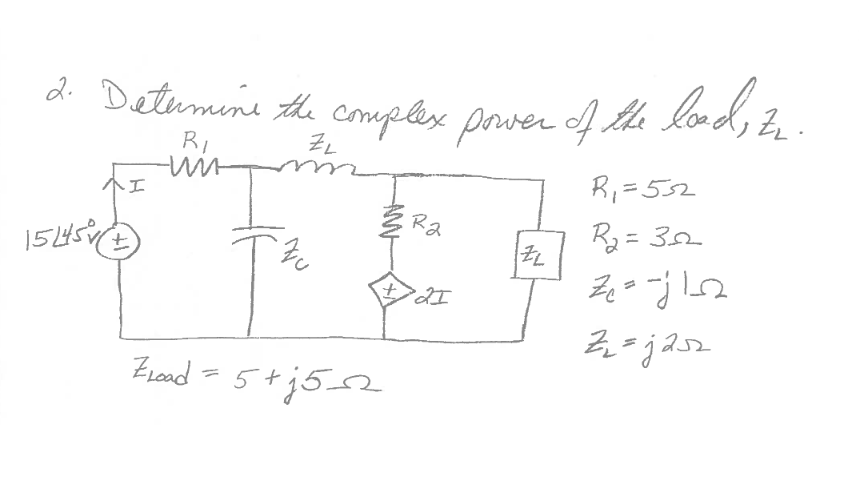 2. Determine the complex power of the load, Z_L.
R₁
Z_L
I
15∠45° V
Z_C
R₂
2I
Z_L
R₁ = 5Ω
R₂ = 3Ω
Z_C = -j1Ω
Z_L = j2Ω
Z_Load = 5 + j5 Ω